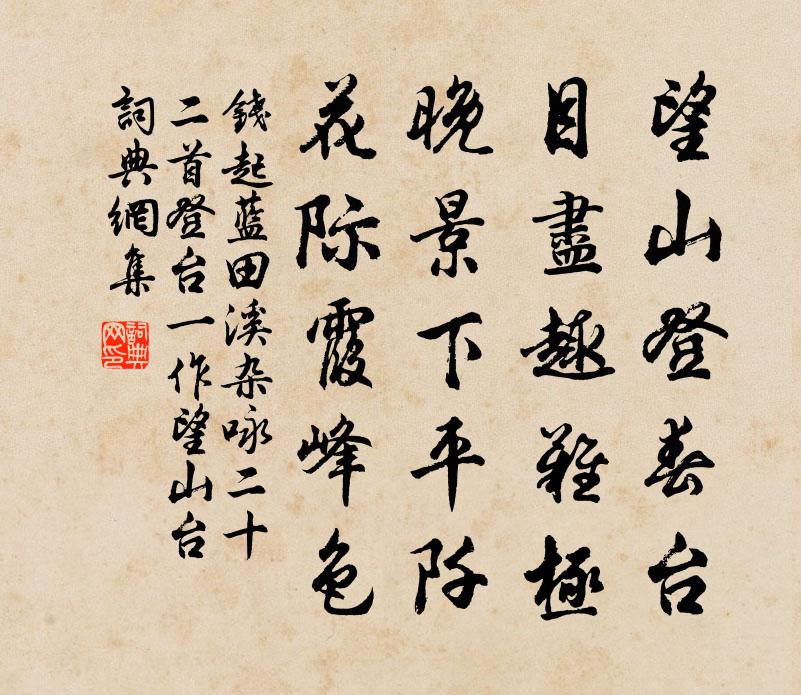 望山登春台
目盡趣難極
晚景下平阡
花际霞峰色
錢起藍田溪杂咏二十
二首登台一作望山台
詞典網集
詞典網印